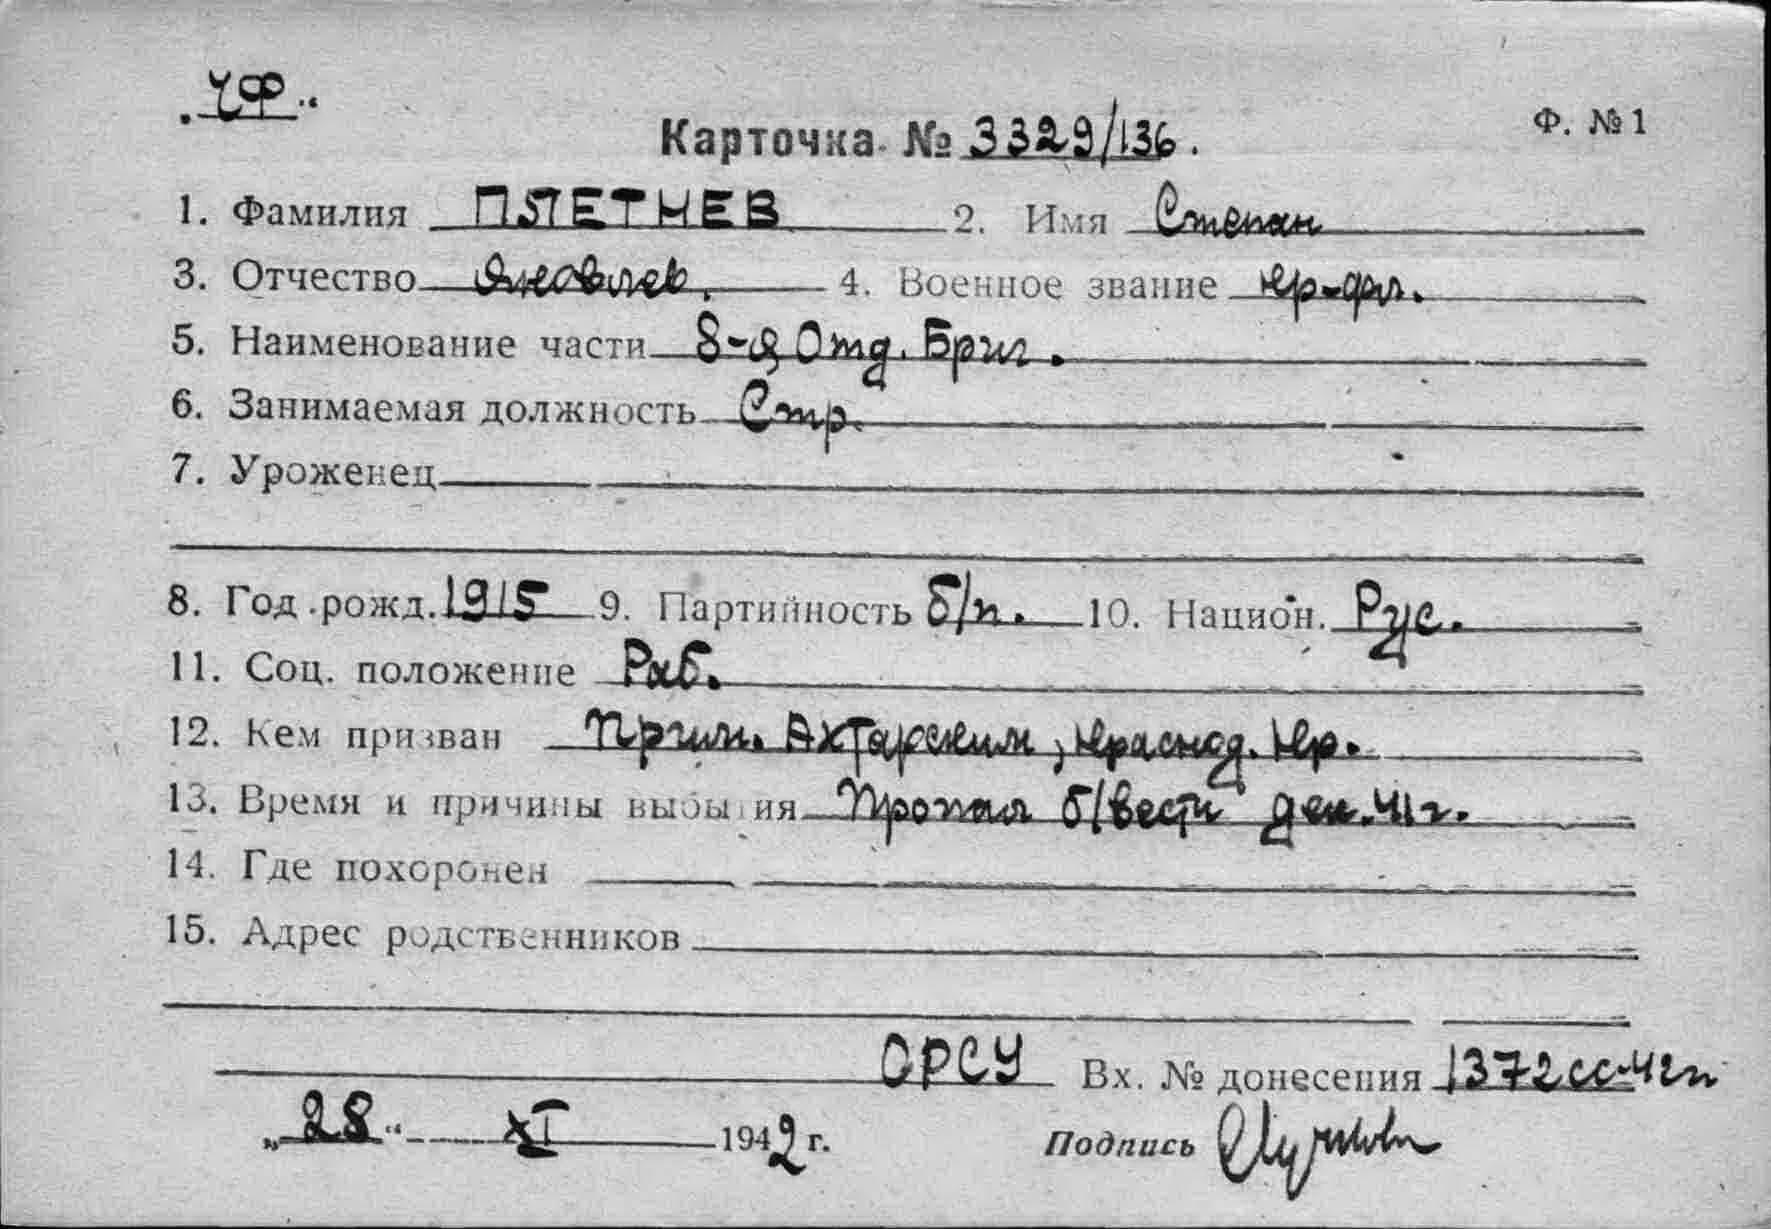 „ЧФ“
Ф. №1
Карточка № 3329/136.
1. Фамилия ПЛЕТНЕВ 2. Имя Степан
3. Отчество Яковлев. 4. Военное звание кр-фл.
5. Наименование части 8-я Отд. Бриг.
6. Занимаемая должность Стр.
7. Уроженец
8. Год рожд. 1915 9. Партийность б/п. 10. Национ. Рус.
11. Соц. положение Раб.
12. Кем призван Прим. Ахтарским, Краснод. Кр.
13. Время и причины выбытия Пропал б/вести дек. 41 г.
14. Где похоронен
15. Адрес родственников
ОРСУ Вх. № донесения 1372сс-42г
„28“ XI 1942 г. Подпись